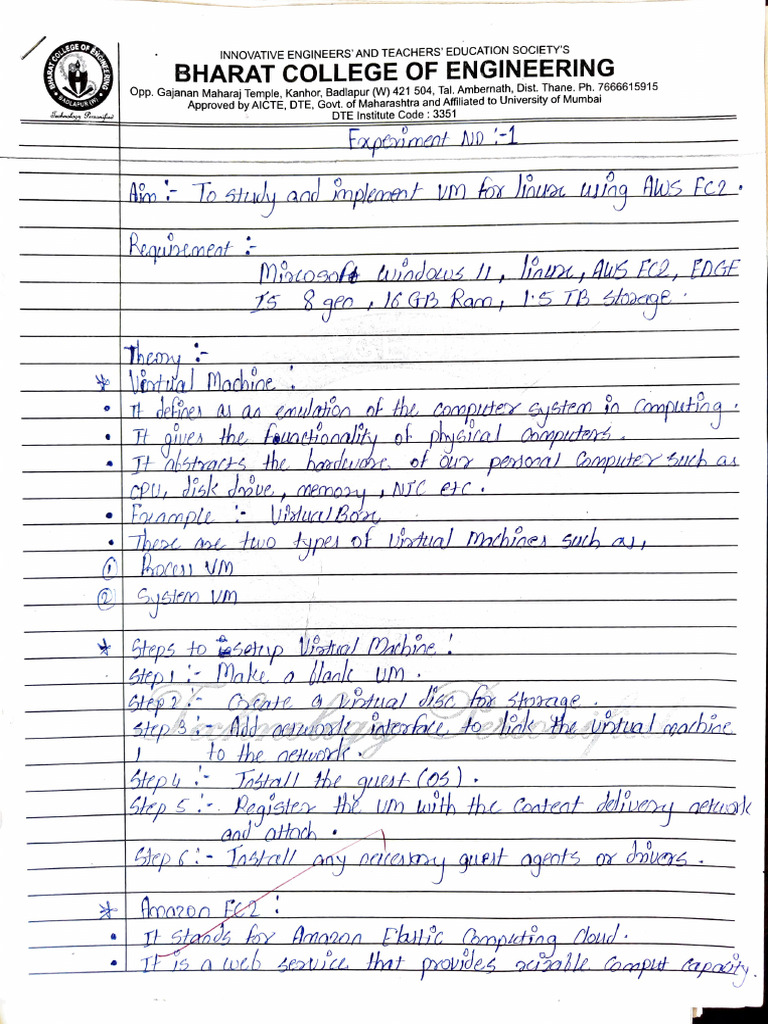 INNOVATIVE ENGINEERS' AND TEACHERS' EDUCATION SOCIETY'S
BHARAT COLLEGE OF ENGINEERING
Opp. Gajanan Maharaj Temple, Kanhor, Badlapur (W) 421 504, Tal. Ambernath, Dist. Thane. Ph. 7666615915
Approved by AICTE, DTE, Govt. of Maharashtra and Affiliated to University of Mumbai
DTE Institute Code : 3351
BHARAT COLLEGE OF ENGINEERING
BADLAPUR (W)
Technology Personified
Experiment NO :- 1
Aim :- To study and implement VM for linux using AWS EC2 .
Requirement :-
Mircosoft windows 11, linux, AWS EC2, EDGE
I5 8 gen , 16 GB Ram, 1.5 TB storage .
Theory :-
* Virtual Machine :
• It defines as an emulation of the computer system in computing .
• It gives the functionality of physical computers .
• It abstracts the hardware of our personal computer such as
CPU, disk drive , memory , NIC etc .
• Example :- VirtualBox
• There are two types of virtual machines such as,
① Process VM
② System VM
* Steps to setup Virtual Machine :
Step 1 :- Make a blank VM .
Step 2 :- Create a virtual disc for storage .
Step 3 :- Add network interface to link the virtual machine
to the network .
Step 4 :- Install the guest (OS) .
Step 5 :- Register the VM with the content delivery network
and attach .
Step 6 :- Install any necessary guest agents or drivers .
Technology Personified
* Amazon EC2 :
• It stands for Amazon Elastic Computing Cloud .
• It is a web service that provides resizable comput capacity.